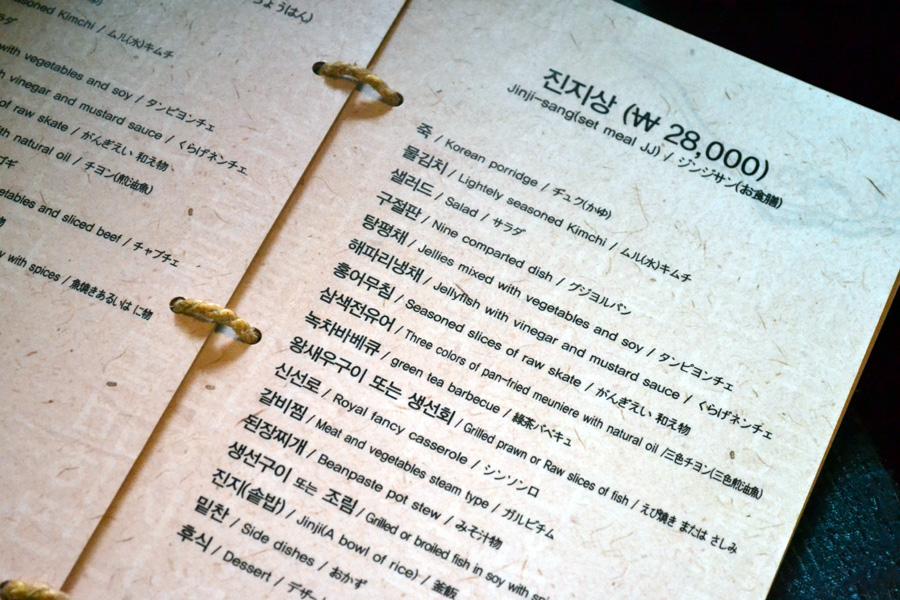 ょうはん)
soned Kimchi / ムル(水)キムチ
ラダ
with vegetables and soy / タンピヨンチェ
h vinegar and mustard sauce / くらげネンチェ
of raw skate / がんぎえい 和え物
th natural oil / チヨン(煎油魚)
ゴギ
etables and sliced beef / チャプチェ
物
y with spices / 魚焼きあるいは に物
진지상 (₩ 28,000)
Jinji-sang(set meal JJ) / ジンジサン(お食膳)
죽 / Korean porridge / チュク(かゆ)
물김치 / Lightely seasoned Kimchi / ムル(水)キムチ
샐러드 / Salad / サラダ
구절판 / Nine comparted dish / グジヨルパン
탕평채 / Jellies mixed with vegetables and soy / タンピヨンチェ
해파리냉채 / Jellyfish with vinegar and mustard sauce / くらげネンチェ
홍어무침 / Seasoned slices of raw skate / がんぎえい 和え物
삼색전유어 / Three colors of pan-fried meuniere with natural oil /三色チヨン(三色煎油魚)
녹차바베큐 / green tea barbecue / 緑茶バベキュ
왕새우구이 또는 생선회 / Grilled prawn or Raw slices of fish / えび焼き または さしみ
신선로 / Royal fancy casserole / シンソンロ
갈비찜 / Meat and vegetables steam type / ガルビチム
된장찌개 / Beanpaste pot stew / みそ汁物
생선구이 또는 조림 / Grilled or broiled fish in soy with
진지(솥밥) / Jinji(A bowl of rice) / 釜飯
밑찬 / Side dishes / おかず
후식 / Dessert / デザー